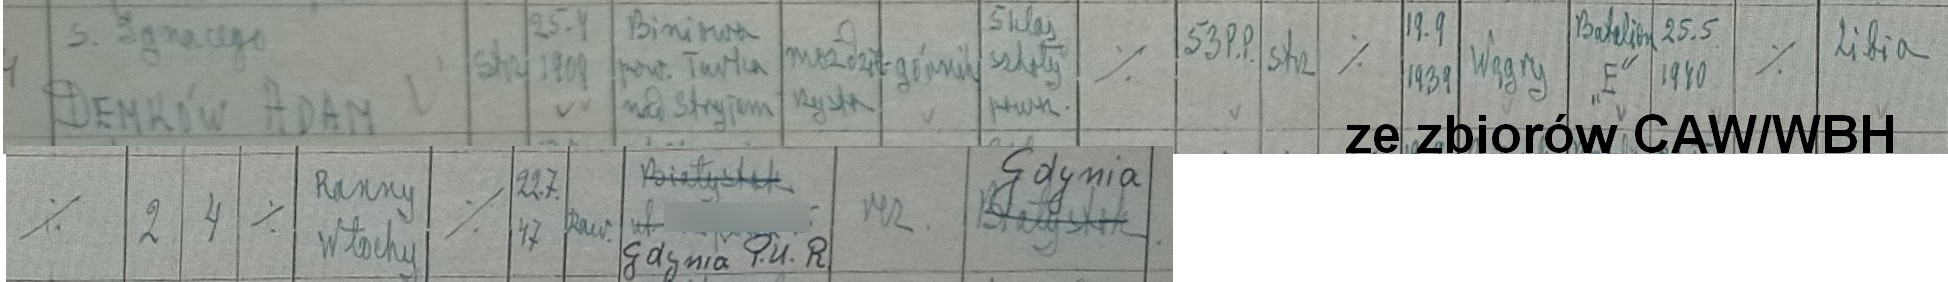 s. Ignacego
DEMKÓW ADAM
strz
25.4
1909
Biniowa
pow. Turka
nad Stryjem
górnik
5 klas
szkoły
powsz.
%
53 P.P.
strz
%
19.9
1939
Węgry
Batelion
„E”
25.5
1940
%
Libia
ze zbiorów CAW/WBH
%
2
4
%
Ranny
Włochy
%
22.7.
47
kaw.
Białystok
ul
Gdynia P.U.R.
rez.
Gdynia
Białystok